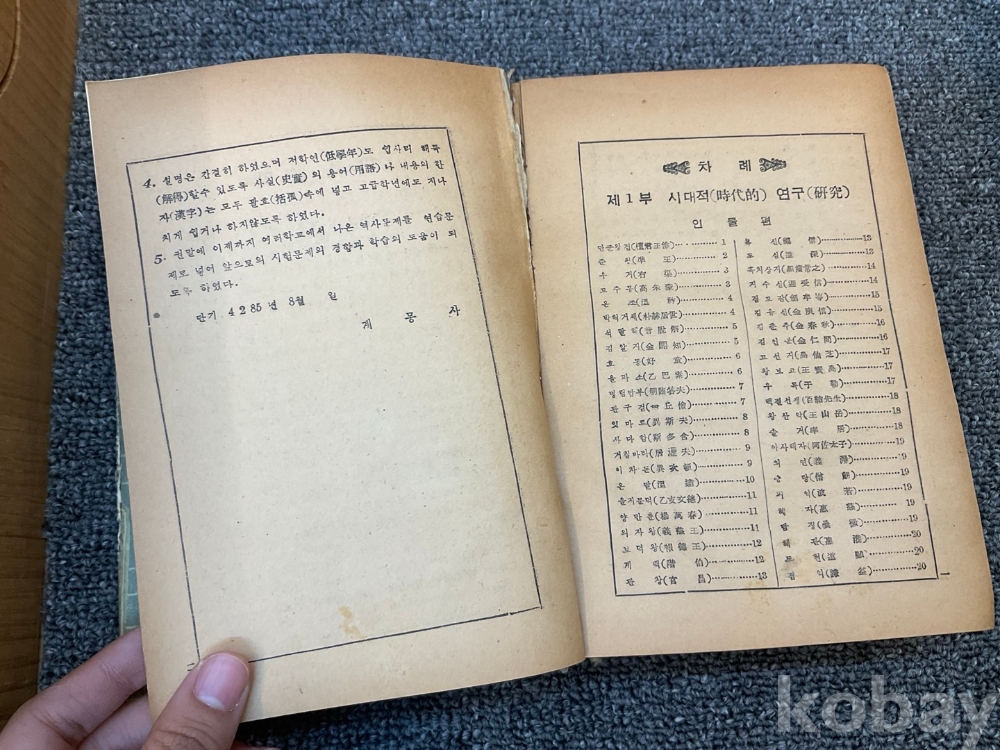 4. 설명은 간결히 하였으며 저학인(低學年)도 쉽사리 해득
(解得)할수 있도록 사실(史實)의 용어(用語)나 내용의 한
자(漢字)는 모두 괄호(括孤)속에 넣고 고급학년에도 지나
치게 쉽거나 하지않도록 하였다.
5. 권말에 이제까지 여러학교에서 나온 역사문제를 연습문
제로 넣어 앞으로의 시험문제의 경향과 학습의 도움이 되
도록 하였다.
단기 4285년 8월 일
계 몽 사
차 례
제1부 시대적(時代的) 연구(硏究)
인 물 편
단군왕검(檀君王儉) 1
준 왕(準 王) 2
우 거(右 渠) 3
고주몽(高朱蒙) 3
온 조(溫 祚) 4
박혁거세(朴赫居世) 4
석탈해(昔脫解) 5
김알지(金閼知) 5
호 동(好 童) 6
을파소(乙巴素) 6
명림답부(明臨答夫) 7
관구검(毌丘儉) 7
잇마로(異斯夫) 8
사다함(斯多含) 8
거칠마라(居柒夫) 9
이차돈(異次頓) 9
온 달(溫 達) 10
을지문덕(乙支文德) 11
양만춘(楊萬春) 11
의자왕(義慈王) 11
보덕왕(報德王) 12
계 백(階 伯) 12
관 창(官 昌) 13
복 신(福 信) 13
도 침(道 琛) 13
흑치상지(黑齒常之) 14
지수신(遲受信) 14
검모잠(劍牟岑) 15
김유신(金庾信) 15
김춘추(金春秋) 16
김인문(金仁問) 16
고선지(高仙芝) 17
장보고(張寶高) 17
우 륵(于 勒) 17
백결선생(百結先生) 18
왕산악(王山岳) 18
솔 거(率 居) 18
아사태자(阿佐太子) 19
의 연(義 淵) 19
승 랑(僧 朗) 19
자(慈 藏) 19
20
도 헌(道 憲) 20
겸 익(謙 益) 20
kobay